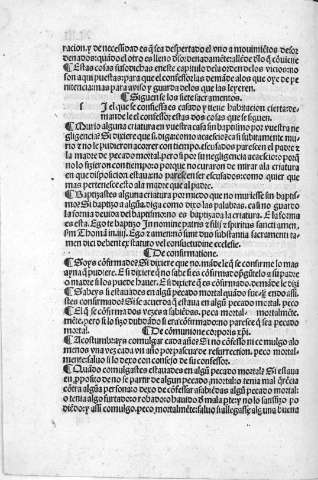 racion. y de necessidad es q̃ sea despertado el vno a mouimiẽtos desor
denados: quãdo el otro es lleno dsordenadamẽte: allẽde d'lo q̃ cõuiene
¶ Estas cosas susodichas en este capitulo dela orden delos vicios: no
son aqui puestas: para que el confessor las demãde alos que oye de pe
nitencia: mas para auiso y guarda delos que las leyeren.
¶ Siguen se los siete sacramentos.
Si el que se confiessa es casado y tiene habitacion cierta: de=
mande le el confessor estas dos cosas que se siguen.
¶ Murio alguna criatura en vuestra casa sin baptismo por vuestra ne
gligencia? Si dixiere que si. digan como acaescio: ca si subitamente mu
rio e no le pudieron acorrer con tiempo. escusados parescen el padre e
la madre de pecado mortal. pero si por su negligencia acaescio: porq̃
no lo fizieron con tiempo: o porque no curaron de mirar ala criatura
en que disposicion estaua: no parescen ser escusados: como quier que
mas pertenesce esto ala madre que al padre.
¶ Baptizastes alguna criatura por miedo que no muriesse sin baptis=
mo? Si baptizo a algũa. diga como dixo las palabras. ca si no guardo
la forma deuida del baptismo no es baptizada la criatura. E la forma
es esta. Ego te baptizo In nomine patris e filij e spiritus sancti amen.
sm Thomã in.iiij. Ego e amen: no sunt duo substantia sacramenti ta=
men dici debent ex statuto vel consuetudine ecclesie.
¶ De confirmatione.
¶ Soys cõfirmado? Si dixere que no. mãdele q̃ se confirme lo mas
ayna q̃ pudiere. E si dixiere q̃ no sabe si es cõfirmado o pgũtelo a su padre
o madre si los puede hauer. E si dixiere q̃ es cõfirmado. demãde le d'zi
¶ Sabeys si estauades en algũ pecado mortal quãdo fue
stes confirmado? Si se acuerda q̃ estaua en algũ pecado mortal. peco
¶ El q̃ se cõfirma dos vezes a sabiẽdas. peco mortal= mortalmẽte.
mẽte. pero si lo fizo dubdãdo si era cõfirmado: no paresce q̃ sea pecado
mortal. ¶ De cõmunione corporis xp̃i.
¶ Acostumbrays comulgar cada año? Si no cõfesso ni comulgo alo
menos vna vez cada vn año por pascua de resurrection. peco mortal=
mente: saluo si lo dexo con consejo de su confessor.
¶ Quãdo comulgastes estauades en algũ pecado mortal? Si estaua
en, pposito de no se partir de algun pecado, mortal: o tenia mal q̃rẽcia
cõtra algũa persona: o dexo de cõfessar a sabiẽdas algũ pecado mortal:
o tenia algo furtado: o robado: o hauido d' mala pte: y no lo satisfizo po
diẽdo: y assi comulgo. peco mortalmẽte: saluo si allegasse algũa buena